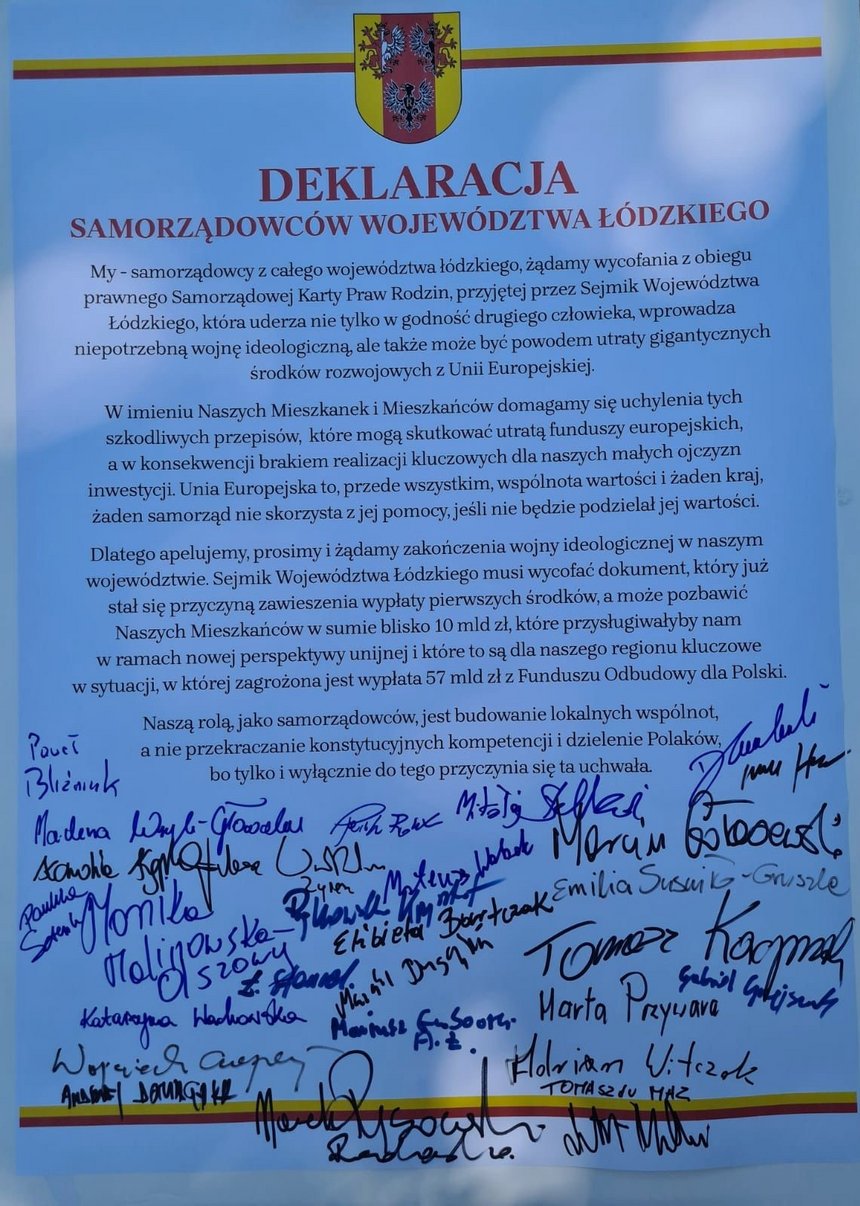 DEKLARACJA
SAMORZĄDOWCÓW WOJEWÓDZTWA ŁÓDZKIEGO
My - samorządowcy z całego województwa łódzkiego, żądamy wycofania z obiegu
prawnego Samorządowej Karty Praw Rodzin, przyjętej przez Sejmik Województwa
Łódzkiego, która uderza nie tylko w godność drugiego człowieka, wprowadza
niepotrzebną wojnę ideologiczną, ale także może być powodem utraty gigantycznych
środków rozwojowych z Unii Europejskiej.
W imieniu Naszych Mieszkanek i Mieszkańców domagamy się uchylenia tych
szkodliwych przepisów, które mogą skutkować utratą funduszy europejskich,
a w konsekwencji brakiem realizacji kluczowych dla naszych małych ojczyzn
inwestycji. Unia Europejska to, przede wszystkim, wspólnota wartości i żaden kraj,
żaden samorząd nie skorzysta z jej pomocy, jeśli nie będzie podzielał jej wartości.
Dlatego apelujemy, prosimy i żądamy zakończenia wojny ideologicznej w naszym
województwie. Sejmik Województwa Łódzkiego musi wycofać dokument, który już
stał się przyczyną zawieszenia wypłaty pierwszych środków, a może pozbawić
Naszych Mieszkańców w sumie blisko 10 mld zł, które przysługiwałyby nam
w ramach nowej perspektywy unijnej i które to są dla naszego regionu kluczowe
w sytuacji, w której zagrożona jest wypłata 57 mld zł z Funduszu Odbudowy dla Polski.
Naszą rolą, jako samorządowców, jest budowanie lokalnych wspólnot,
a nie przekraczanie konstytucyjnych kompetencji i dzielenie Polaków,
bo tylko i wyłącznie do tego przyczynia się ta uchwała.
Paweł
Bliźniuk
Marcin Gołaszewski
Mateusz
Emilia Susniło-Gruszka
Monika
Malinowska-
Olszowy
Elżbieta Bartczak
Tomasz Kacprzak
Katarzyna Wachowska
Marta Przywara
Mariusz
Wojciech
Adrian Witczak
TOMASZÓW MAZ
Marek